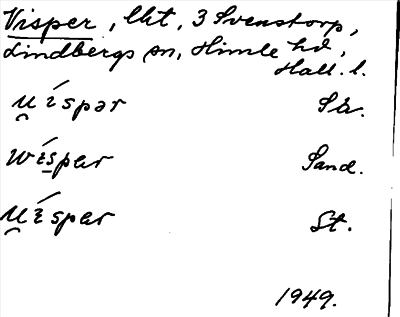 Visper, lht, 3 Svenstorp,
Lindbergs sn, Himle hd,
Hall. l.
u̯íspər Så.
wíspar Sand.
u̯íspar St.
1949.